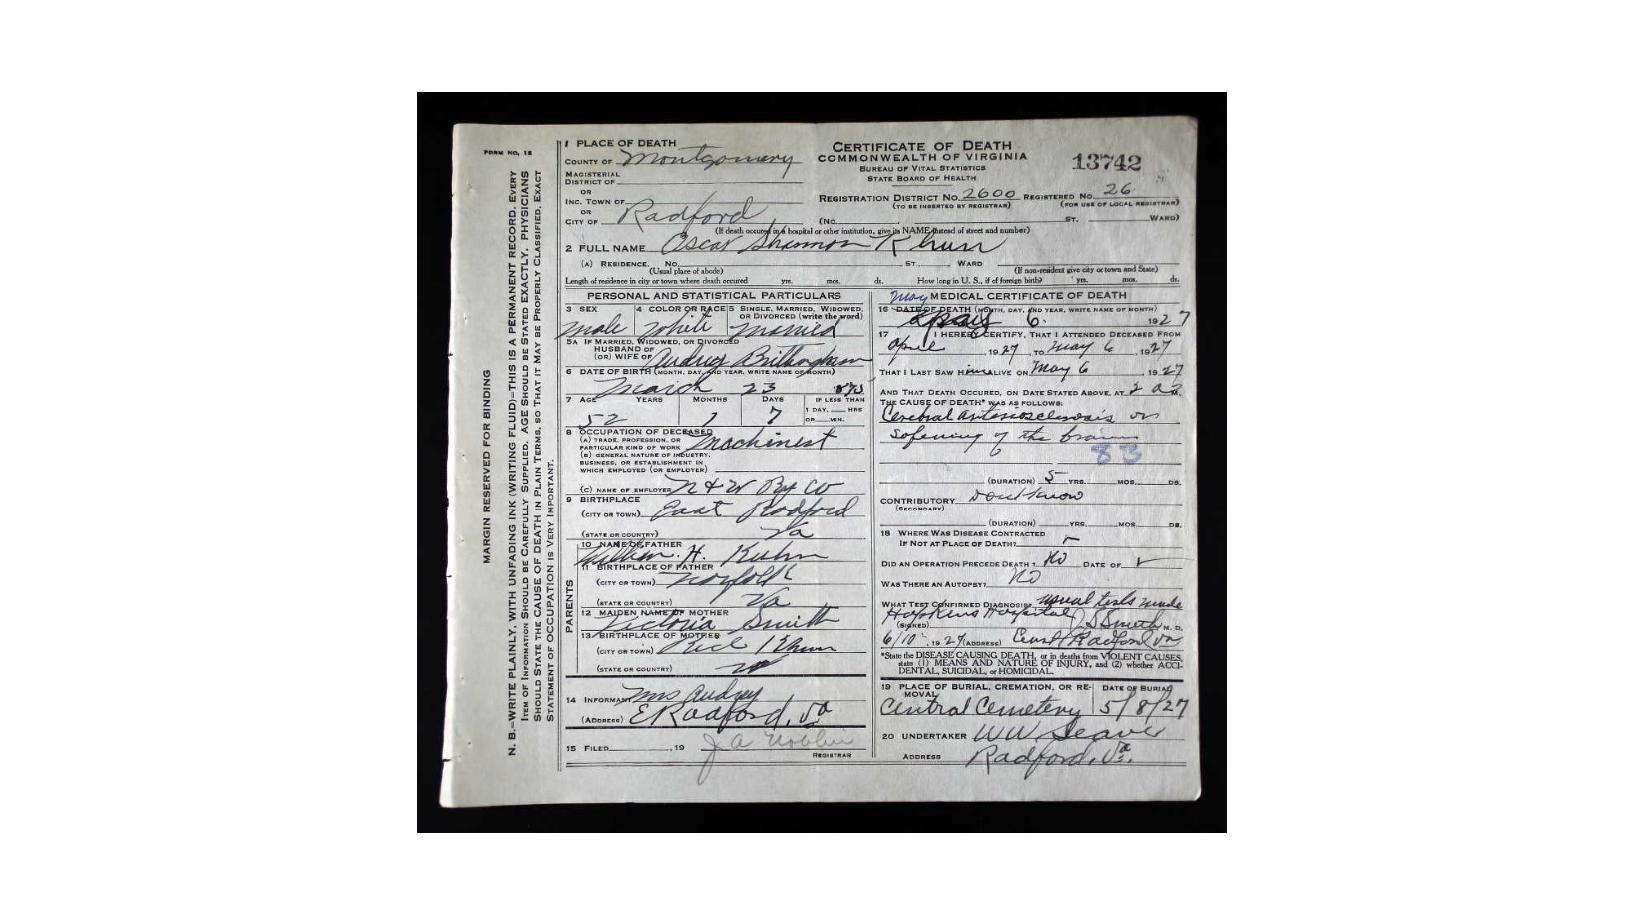 FORM NO. 12
MARGIN RESERVED FOR BINDING
N. B.—WRITE PLAINLY, WITH UNFADING INK (WRITING FLUID)—THIS IS A PERMANENT RECORD. EVERY
ITEM OF INFORMATION SHOULD BE CAREFULLY SUPPLIED. AGE SHOULD BE STATED EXACTLY. PHYSICIANS
SHOULD STATE THE CAUSE OF DEATH IN PLAIN TERMS, SO THAT IT MAY BE PROPERLY CLASSIFIED. EXACT
STATEMENT OF OCCUPATION IS VERY IMPORTANT.
1 PLACE OF DEATH
COUNTY OF Montgomery
MAGISTERIAL
DISTRICT OF
OR
INC. TOWN OF
OR
CITY OF Radford
CERTIFICATE OF DEATH
COMMONWEALTH OF VIRGINIA
BUREAU OF VITAL STATISTICS
STATE BOARD OF HEALTH
13742
REGISTRATION DISTRICT NO. 2600 REGISTERED NO. 26
(TO BE INSERTED BY REGISTRAR) (FOR USE OF LOCAL REGISTRAR)
(NO. ST. WARD)
(If death occured in a hospital or other institution, give its NAME instead of street and number)
2 FULL NAME Oscar Shannon Khun
(A) RESIDENCE. NO. ST. WARD
(Usual place of abode) (If non-resident give city or town and State)
Length of residence in city or town where death occured yrs. mos. ds. How long in U. S., if of foreign birth? yrs. mos. ds.
PERSONAL AND STATISTICAL PARTICULARS
3 SEX 4 COLOR OR RACE 5 SINGLE, MARRIED, WIDOWED,
OR DIVORCED (write the word)
Male White Married
5A IF MARRIED, WIDOWED, OR DIVORCED
HUSBAND OF
(OR) WIFE OF Audrey Brillingham
6 DATE OF BIRTH (MONTH, DAY, AND YEAR, WRITE NAME OF MONTH)
March 23 1875
7 AGE YEARS MONTHS DAYS IF LESS THAN
1 DAY, HRS
OR MIN.
52 1 7
8 OCCUPATION OF DECEASED
(A) TRADE, PROFESSION, OR
PARTICULAR KIND OF WORK Machinest
(B) GENERAL NATURE OF INDUSTRY,
BUSINESS, OR ESTABLISHMENT IN
WHICH EMPLOYED (OR EMPLOYER)
(C) NAME OF EMPLOYER N & W Ry Co
9 BIRTHPLACE
(CITY OR TOWN) East Radford
(STATE OR COUNTRY) Va
PARENTS
10 NAME OF FATHER
William H. Kuhn
11 BIRTHPLACE OF FATHER
(CITY OR TOWN) Norfolk
(STATE OR COUNTRY) Va
12 MAIDEN NAME OF MOTHER
Victoria Smith
13 BIRTHPLACE OF MOTHER
(CITY OR TOWN)
(STATE OR COUNTRY)
14 INFORMANT Mrs Audrey
(ADDRESS) E Radford, Va
15 FILED , 19
REGISTRAR
MEDICAL CERTIFICATE OF DEATH
May
16 DATE OF DEATH (MONTH, DAY, AND YEAR, WRITE NAME OF MONTH)
6 1927
17 I HEREBY CERTIFY, THAT I ATTENDED DECEASED FROM
April , 1927 , TO May 6 , 1927
THAT I LAST SAW Him ALIVE ON May 6 , 1927
AND THAT DEATH OCCURED, ON DATE STATED ABOVE, AT 2 a M.
THE CAUSE OF DEATH* WAS AS FOLLOWS:
Cerebral arteriosclerosis or
sofening of the brain
83
(DURATION) 5 YRS. MOS. DS.
CONTRIBUTORY Dont know
(SECONDARY)
(DURATION) YRS. MOS. DS.
18 WHERE WAS DISEASE CONTRACTED
IF NOT AT PLACE OF DEATH?
DID AN OPERATION PRECEDE DEATH? No DATE OF
WAS THERE AN AUTOPSY? No
WHAT TEST CONFIRMED DIAGNOSIS? usual tests made
Hopkins Hospital
(SIGNED) J S Smith M. D.
6/10, 1927 (ADDRESS) East Radford Va
*State the DISEASE CAUSING DEATH, or in deaths from VIOLENT CAUSES,
state (1) MEANS AND NATURE OF INJURY, and (2) whether ACCI-
DENTAL, SUICIDAL, or HOMICIDAL.
19 PLACE OF BURIAL, CREMATION, OR RE-
MOVAL DATE OF BURIAL
Central Cemetery 5/8/27
20 UNDERTAKER WW Seaver
ADDRESS Radford, Va.